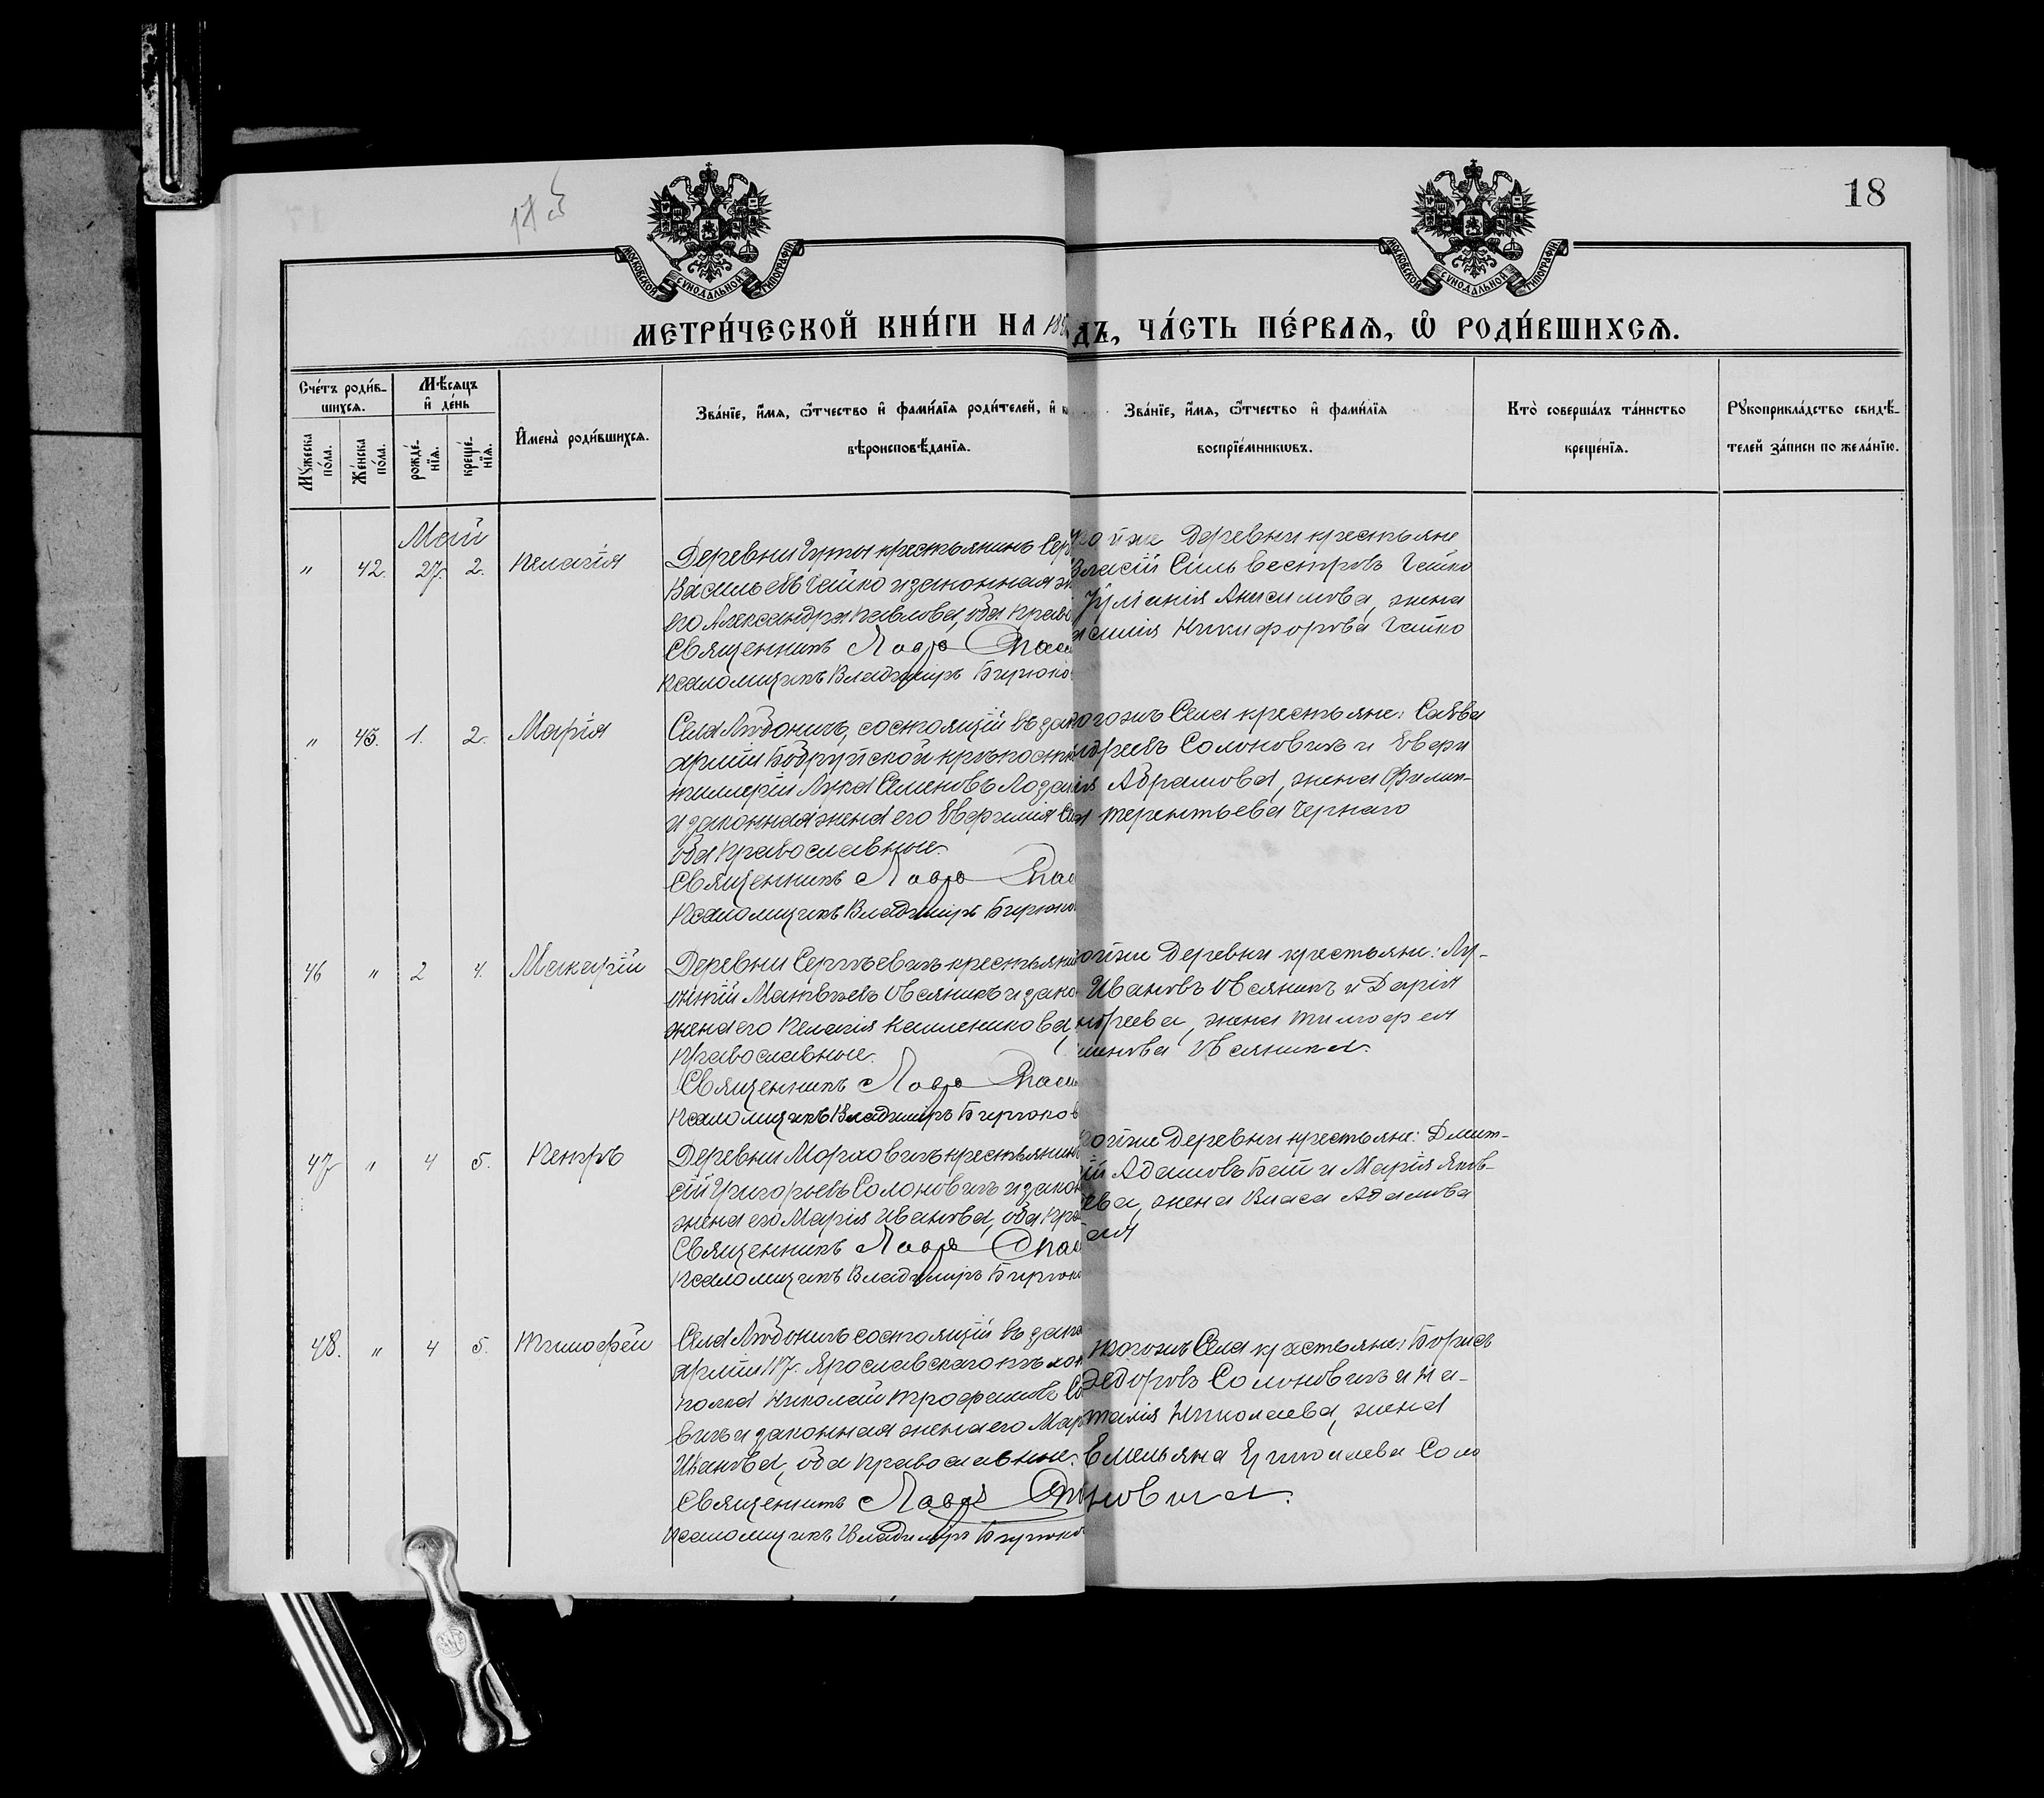 18
МОСКОВСКОЙ СѴНОДАЛЬНОЙ ТИПОГРАФІИ
МОСКОВСКОЙ СѴНОДАЛЬНОЙ ТИПОГРАФІИ
МЕТРИ́ЧЕСКОЙ КНИ́ГИ НА 18
ДЪ, ЧА́СТЬ ПЕ́РВАѦ, Ѡ҆ РОДИ́ВШИХСѦ.
Сче́тъ роди́в-
шихсѧ.
Мꙋ́жеска по́ла.
Же́нска по́ла.
Мѣ́сѧцъ
и҆ де́нь
рожде́-
нїѧ.
креще́-
нїѧ.
И҆мена̀ роди́вшихсѧ.
Зва́нїе, и҆́мѧ, ѻ҆́тчество и҆ фами́лїѧ роди́телей, и҆
вѣроисповѣ́данїѧ.
Зва́нїе, и҆́мѧ, ѻ҆́тчество и҆ фами́лїѧ
воспрїе́мникѡвъ.
Кто̀ соверша́лъ та́инство
креще́нїѧ.
Рꙋкоприкла́дство свидѣ́-
телей за́писи по жела́нїю.
Май
" 42. 27. 2. Пелагія
Деревни Гуты крестьянинъ Сер
Васильевъ Гайко и законная
его Александра Павлова, оба прав
Священникъ Лавръ
Псаломщикъ Владиміръ Бирюко
той же деревни крестьяне
Власій Сильвестровъ Гайко
Іуліанія Анисимова, жена
Никифорова Гайко
" 45. 1. 2. Марія
Села Любоничъ, состоящій въ
арміи Бобруйской крѣпостн
тиллеріи Лука Семеновъ
и законная жена его Евфимія
оба православные.
Священникъ Лавръ
Псаломщикъ Владиміръ Бирюко
тогожъ Села крестьяне: Савва
Солоновичъ и
Абрамова, жена Филип-
Терентьева Чернаго
46 " 2 4. Макарій
Деревни Сергѣевичъ крестьяни
Матвѣевъ Овсяникъ и зако
жена его Пелагія
православные.
Священникъ Лавръ
Псаломщикъ Владиміръ Бирюков
ойже деревни крестьяне: Лу-
Ивановъ Овсяникъ и Дарія
дреева, жена Тимофея
Овсяника.
47 " 4 5. Петръ
Деревни Морховичъ крестьянинъ
сій Григорьевъ Солоновичъ и закон
жена его Марія Иванова, оба пра
Священникъ Лавръ
Псаломщикъ Владиміръ Бирюко
тойже деревни крестьяне: Дмит-
рій Адамовъ Бай и Марія Яков-
лева, жена Власа Адамова
Бая
48. " 4 5. Тимофей
Села Любоничъ состоящій въ запа
арміи 117. Ярославскаго пѣхот
полка Николай Трофимовъ Со
вичъ и законная жена его Мар
Иванова, оба православные.
Священникъ Лавръ
Псаломщикъ Владиміръ Бирюко
тогожъ Села крестьяне: Борисъ
Ѳедоровъ Солоновичъ и На-
талія Николаева, жена
Емельяна Ермолаева Соло
новича.